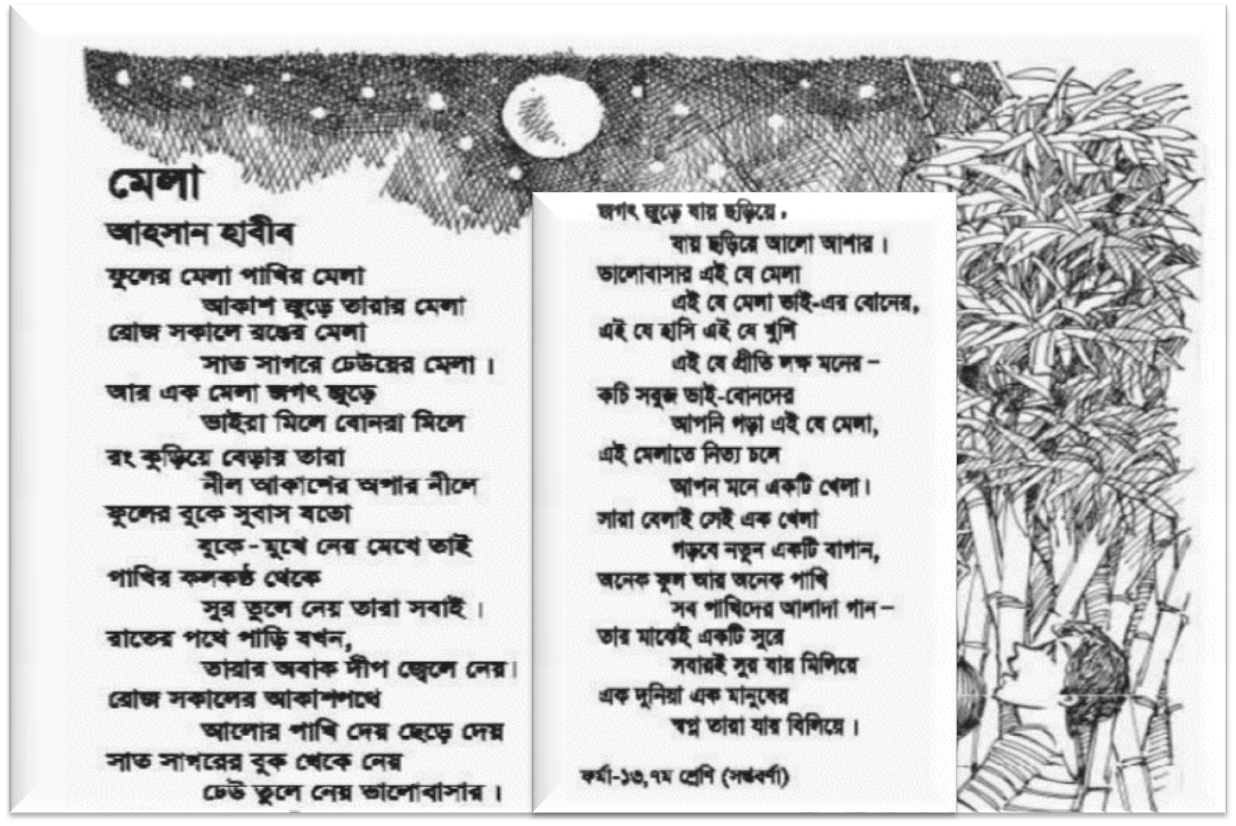 মেলা
আহসান হাবীব
ফুলের মেলা পাখির মেলা
আকাশ জুড়ে তারার মেলা
রোজ সকালে রঙের মেলা
সাত সাগরে ঢেউয়ের মেলা ।
আর এক মেলা জগৎ জুড়ে
ভাইরা মিলে বোনরা মিলে
রং কুড়িয়ে বেড়ায় তারা
নীল আকাশের অপার নীলে
ফুলের বুকে সুবাস যতো
বুকে-মুখে নেয় মেখে তাই
পাখির কলকণ্ঠ থেকে
সুর তুলে নেয় তারা সবাই ।
রাতের পথে পাড়ি যখন,
তারার অবাক দীপ জ্বেলে নেয়।
রোজ সকালের আকাশপথে
আলোর পাখি দেয় ছেড়ে দেয়
সাত সাগরের বুক থেকে নেয়
ঢেউ তুলে নেয় ভালোবাসার ।
জগৎ জুড়ে যায় ছড়িয়ে,
যায় ছড়িয়ে আলো আশার ।
ভালোবাসার এই যে মেলা
এই যে মেলা ভাই-এর বোনের,
এই যে হাসি এই যে খুশি
এই যে প্রীতি লক্ষ মনের –
কচি সবুজ ভাই-বোনদের
আপনি গড়া এই যে মেলা,
এই মেলাতে নিত্য চলে
আপন মনে একটি খেলা।
সারা বেলাই সেই এক খেলা
গড়বে নতুন একটি বাগান,
অনেক ফুল আর অনেক পাখি
সব পাখিদের আলাদা গান –
তার মাঝেই একটি সুরে
সবারই সুর যায় মিলিয়ে
এক দুনিয়া এক মানুষের
স্বপ্ন তারা যায় বিলিয়ে ।
ফর্মা-১৩,৭ম শ্রেণি (সপ্তবর্ণা)